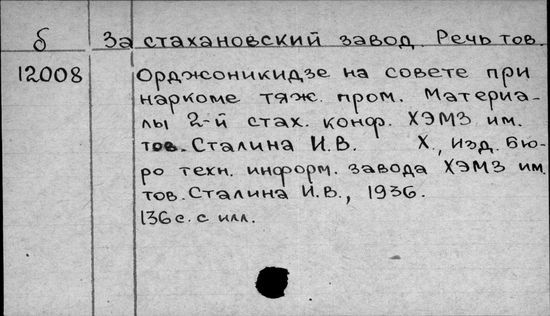 б За стахановский завод. Речь тов.
12008 Орджоникидзе на совете при
наркоме тяж. пром. Материа-
лы 2-й стах. конф. ХЭМЗ им.
тов. Сталина И.В. Х., изд. Бю-
ро техн. информ. завода ХЭМЗ им.
тов. Сталина И.В., 1936.
136 с. с илл.